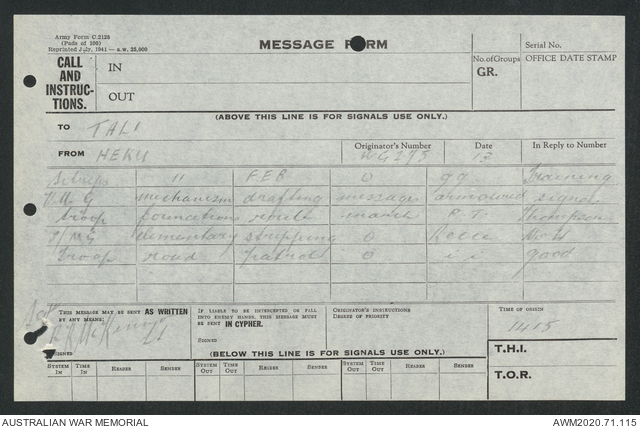 Army Form C.2128
(Pads of 100)
Reprinted July, 1941 — s.w. 25,000
MESSAGE FORM
Serial No.
CALL AND INSTRUCTIONS.
IN
OUT
No. of Groups
GR.
OFFICE DATE STAMP
(ABOVE THIS LINE IS FOR SIGNALS USE ONLY.)
TO TALI
FROM HEKU
Originator's Number
G 275
Date
13
In Reply to Number
Sitrep 11 FEB 0 Training
mechanism drafting messages armoured signal
troop formations route march R.T. Thompson
elementary stripping 0
Troop road patrol 0 i i good
THIS MESSAGE MAY BE SENT AS WRITTEN BY ANY MEANS.
IF LIABLE TO BE INTERCEPTED OR FALL INTO ENEMY HANDS, THIS MESSAGE MUST BE SENT IN CYPHER.
SIGNED
ORIGINATOR'S INSTRUCTIONS
DEGREE OF PRIORITY
TIME OF ORIGIN
1415
(BELOW THIS LINE IS FOR SIGNALS USE ONLY.)
T.H.I.
T.O.R.
SYSTEM IN TIME IN READER SENDER SYSTEM OUT TIME OUT READER SENDER SYSTEM OUT TIME OUT READER SENDER
AUSTRALIAN WAR MEMORIAL
AWM2020.71.115